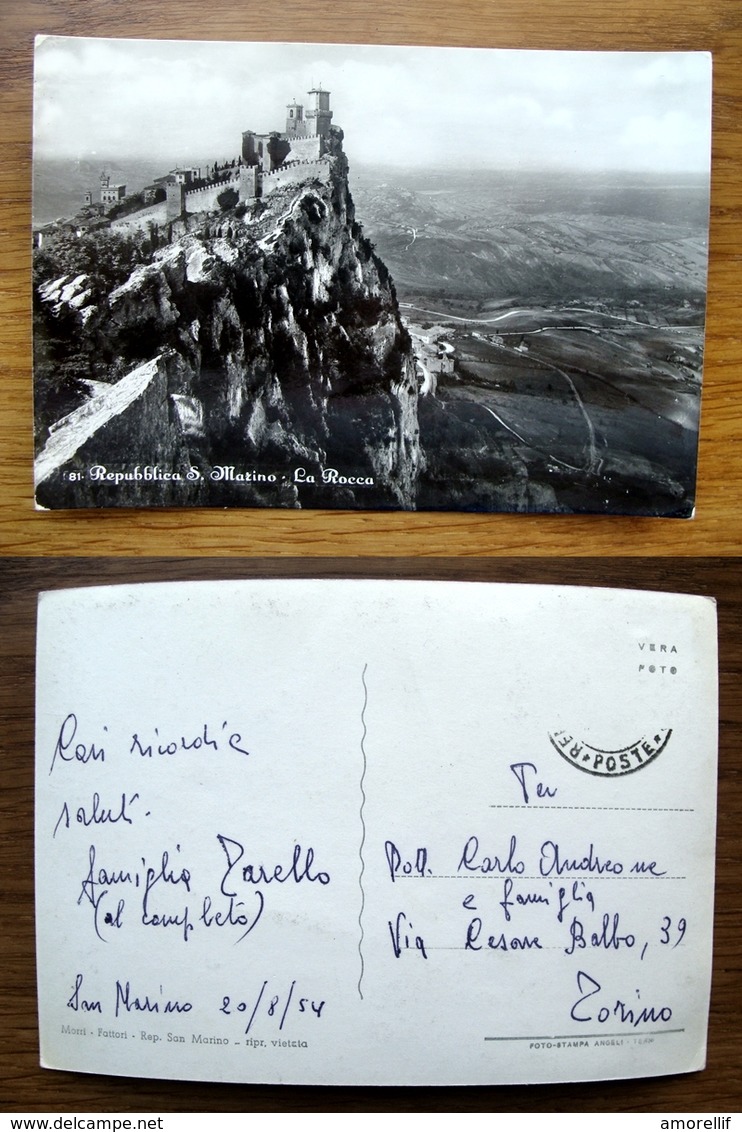 81 - Repubblica S. Marino - La Rocca
VERA
FOTO
POSTE
Cari ricordi e
saluti.
famiglia Tarello
(al completo)
San Marino 20/8/54
Ten
Dott. Carlo Andreone
e famiglia
Via Cesare Balbo, 39
Torino
Morri - Fattori - Rep. San Marino - ripr. vietata
FOTO-STAMPA ANGELI - TERNI
delcampe.net
amorellif